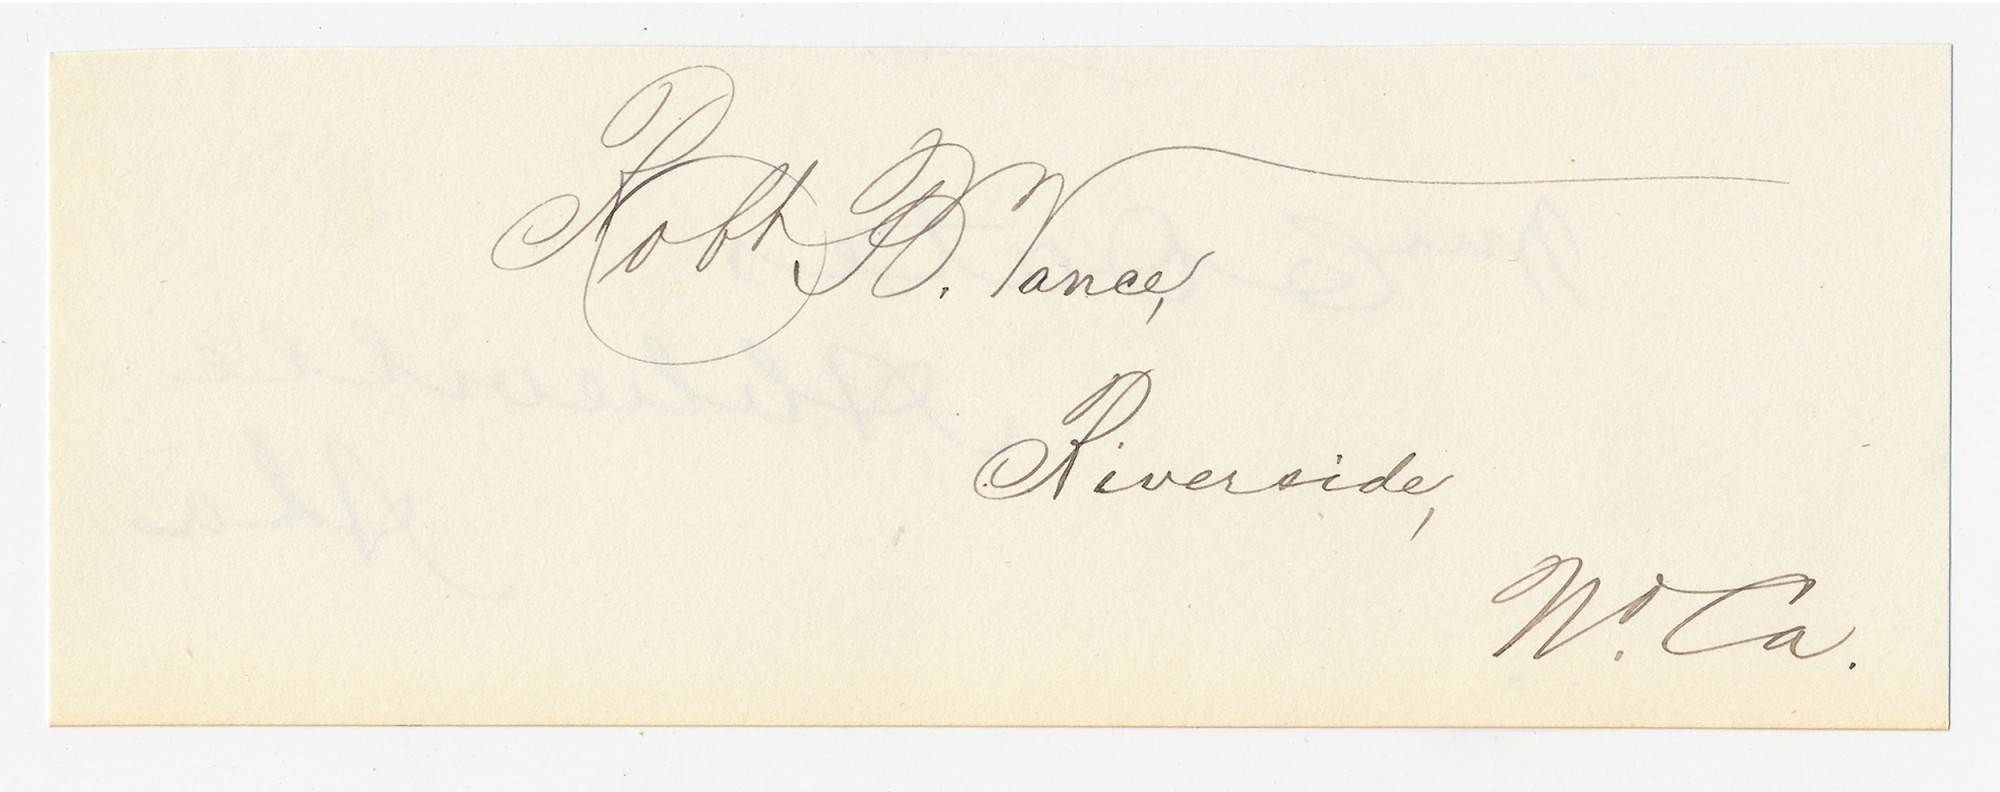 Robt B. Vance,
Riverside,
N. Ca.